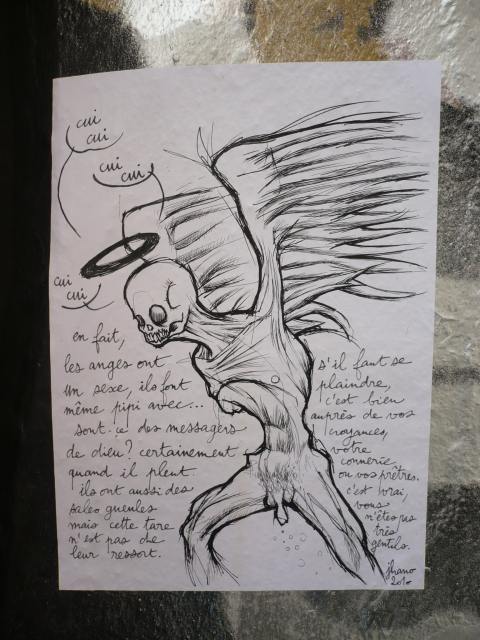 cui
cui
cui
cui
cui
cui
en fait,
les anges ont
un sexe, ils font
même pipi avec...
sont-ce des messagers
de dieu? certainement
quand il pleut
ils ont aussi des
sales gueules
mais cette tare
n'est pas de
leur ressort.
s'il faut se
plaindre,
c'est bien
auprès de vos
croyances,
votre
connerie
ou vos prêtres.
c'est vrai,
vous
n'êtes pas
très
gentils.
jhano
2010